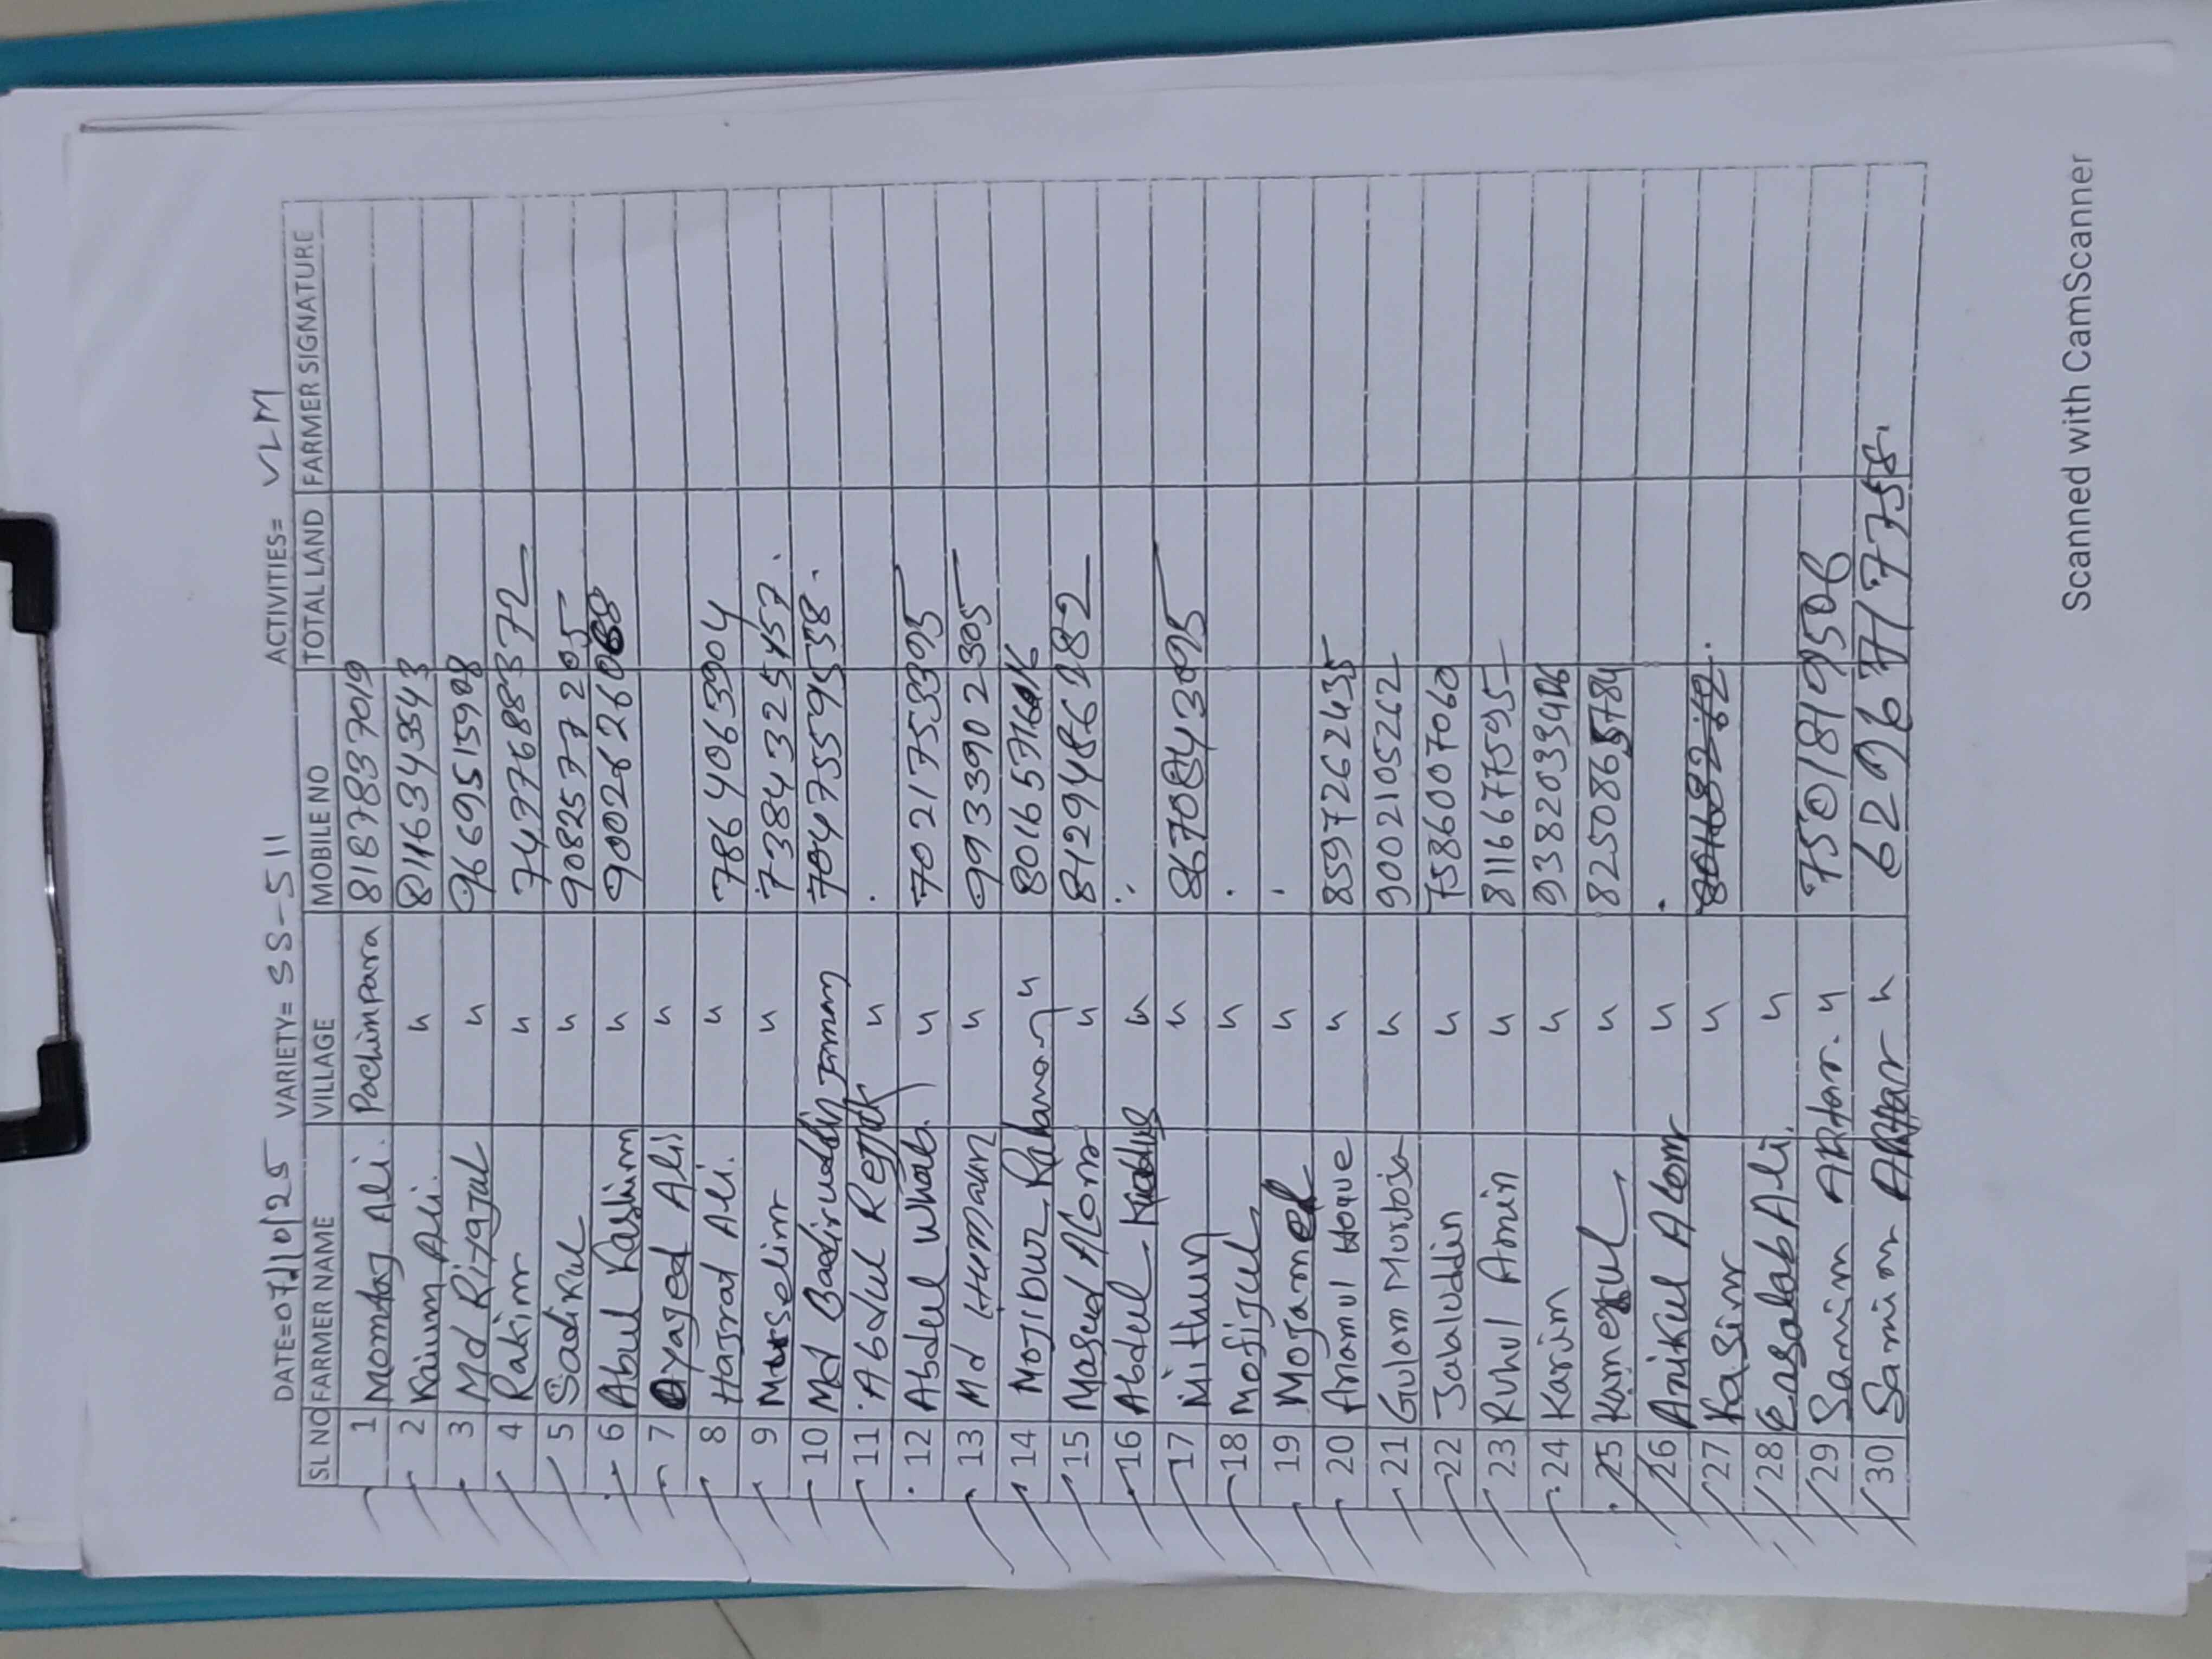 DATE=07/10/25 VARIETY= SS-511 ACTIVITIES= VLM
SL NO FARMER NAME VILLAGE MOBILE NO TOTAL LAND FARMER SIGNATURE
1 Momtaj Ali. Pochimpara 8187837019
2 Kaium Ali. 〃 8116343543
3 Md Ritajul 〃 9669515908
4 Rakim 〃 74977688372
5 Sadikul 〃 9082577205
6 Abul Kashim 〃
7 Ayajed Ali 〃
8 Hajrat Ali. 〃 7864063904
9 Murselim 〃 7384325457.
10 Md Badiruddin 7047559558.
11 Abdul 〃
12 Abdul Whab. 〃 7021753395
13 Md Humaun 〃 9933902305
14 Mojibur Rahaman 〃
15 Masud Alom 〃 8129486282
16 Abdul Kuddus 〃
17 Mithun 〃 8670843095
18 Mofijul 〃
19 Mojamel 〃
20 Anamul Hoque 〃 8597262435
21 Golam Mortoja 〃 9002105262
22 Jabaluddin 〃 7586007060
23 Ruhul Amin 〃 8116677595
24 Karim 〃
25 Kamerul 〃 8250865784
26 Anikul Alom 〃
27 Kasim 〃
28 Ensalab Ali. 〃
29 Samim Aktar. 〃 7501819506
30 Samim Aktar 〃 6296717758.
Scanned with CamScanner